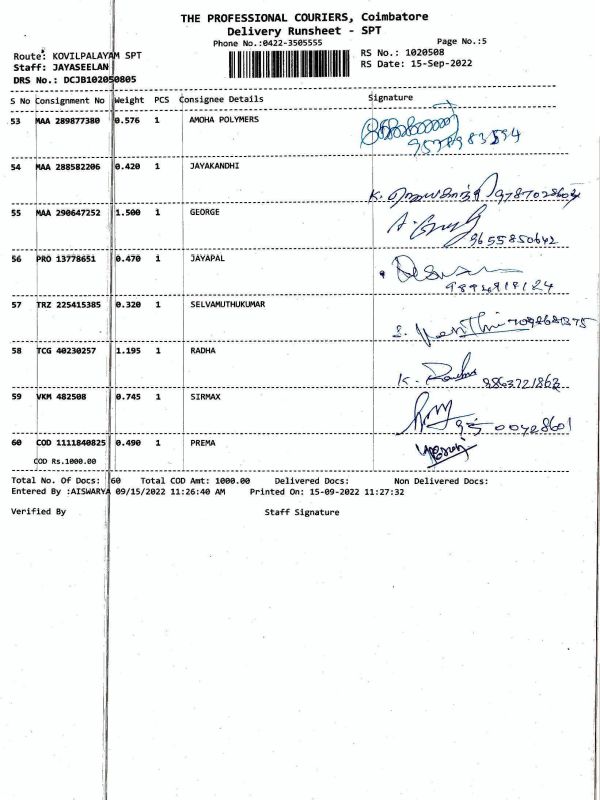 THE PROFESSIONAL COURIERS, Coimbatore
Delivery Runsheet - SPT
Phone No.:0422-3505555 Page No.:5
Route: KOVILPALAYAM SPT RS No.: 1020508
Staff: JAYASEELAN RS Date: 15-Sep-2022
DRS No.: DCJB102050805
S No Consignment No Weight PCS Consignee Details Signature
53 MAA 289877380 0.576 1 AMOHA POLYMERS
54 MAA 288582206 0.420 1 JAYAKANDHI
K. ஜெயகாந்தி
55 MAA 290647252 1.500 1 GEORGE
9655850642
56 PRO 13778651 0.470 1 JAYAPAL
57 TRZ 225415385 0.320 1 SELVAMUTHUKUMAR
58 TCG 40230257 1.195 1 RADHA
K. Radha 8863721863
59 VKM 482508 0.745 1 SIRMAX
60 COD 1111840825 0.490 1 PREMA
COD Rs.1000.00
Total No. Of Docs: 60 Total COD Amt: 1000.00 Delivered Docs: Non Delivered Docs:
Entered By :AISWARYA 09/15/2022 11:26:40 AM Printed On: 15-09-2022 11:27:32
Verified By Staff Signature